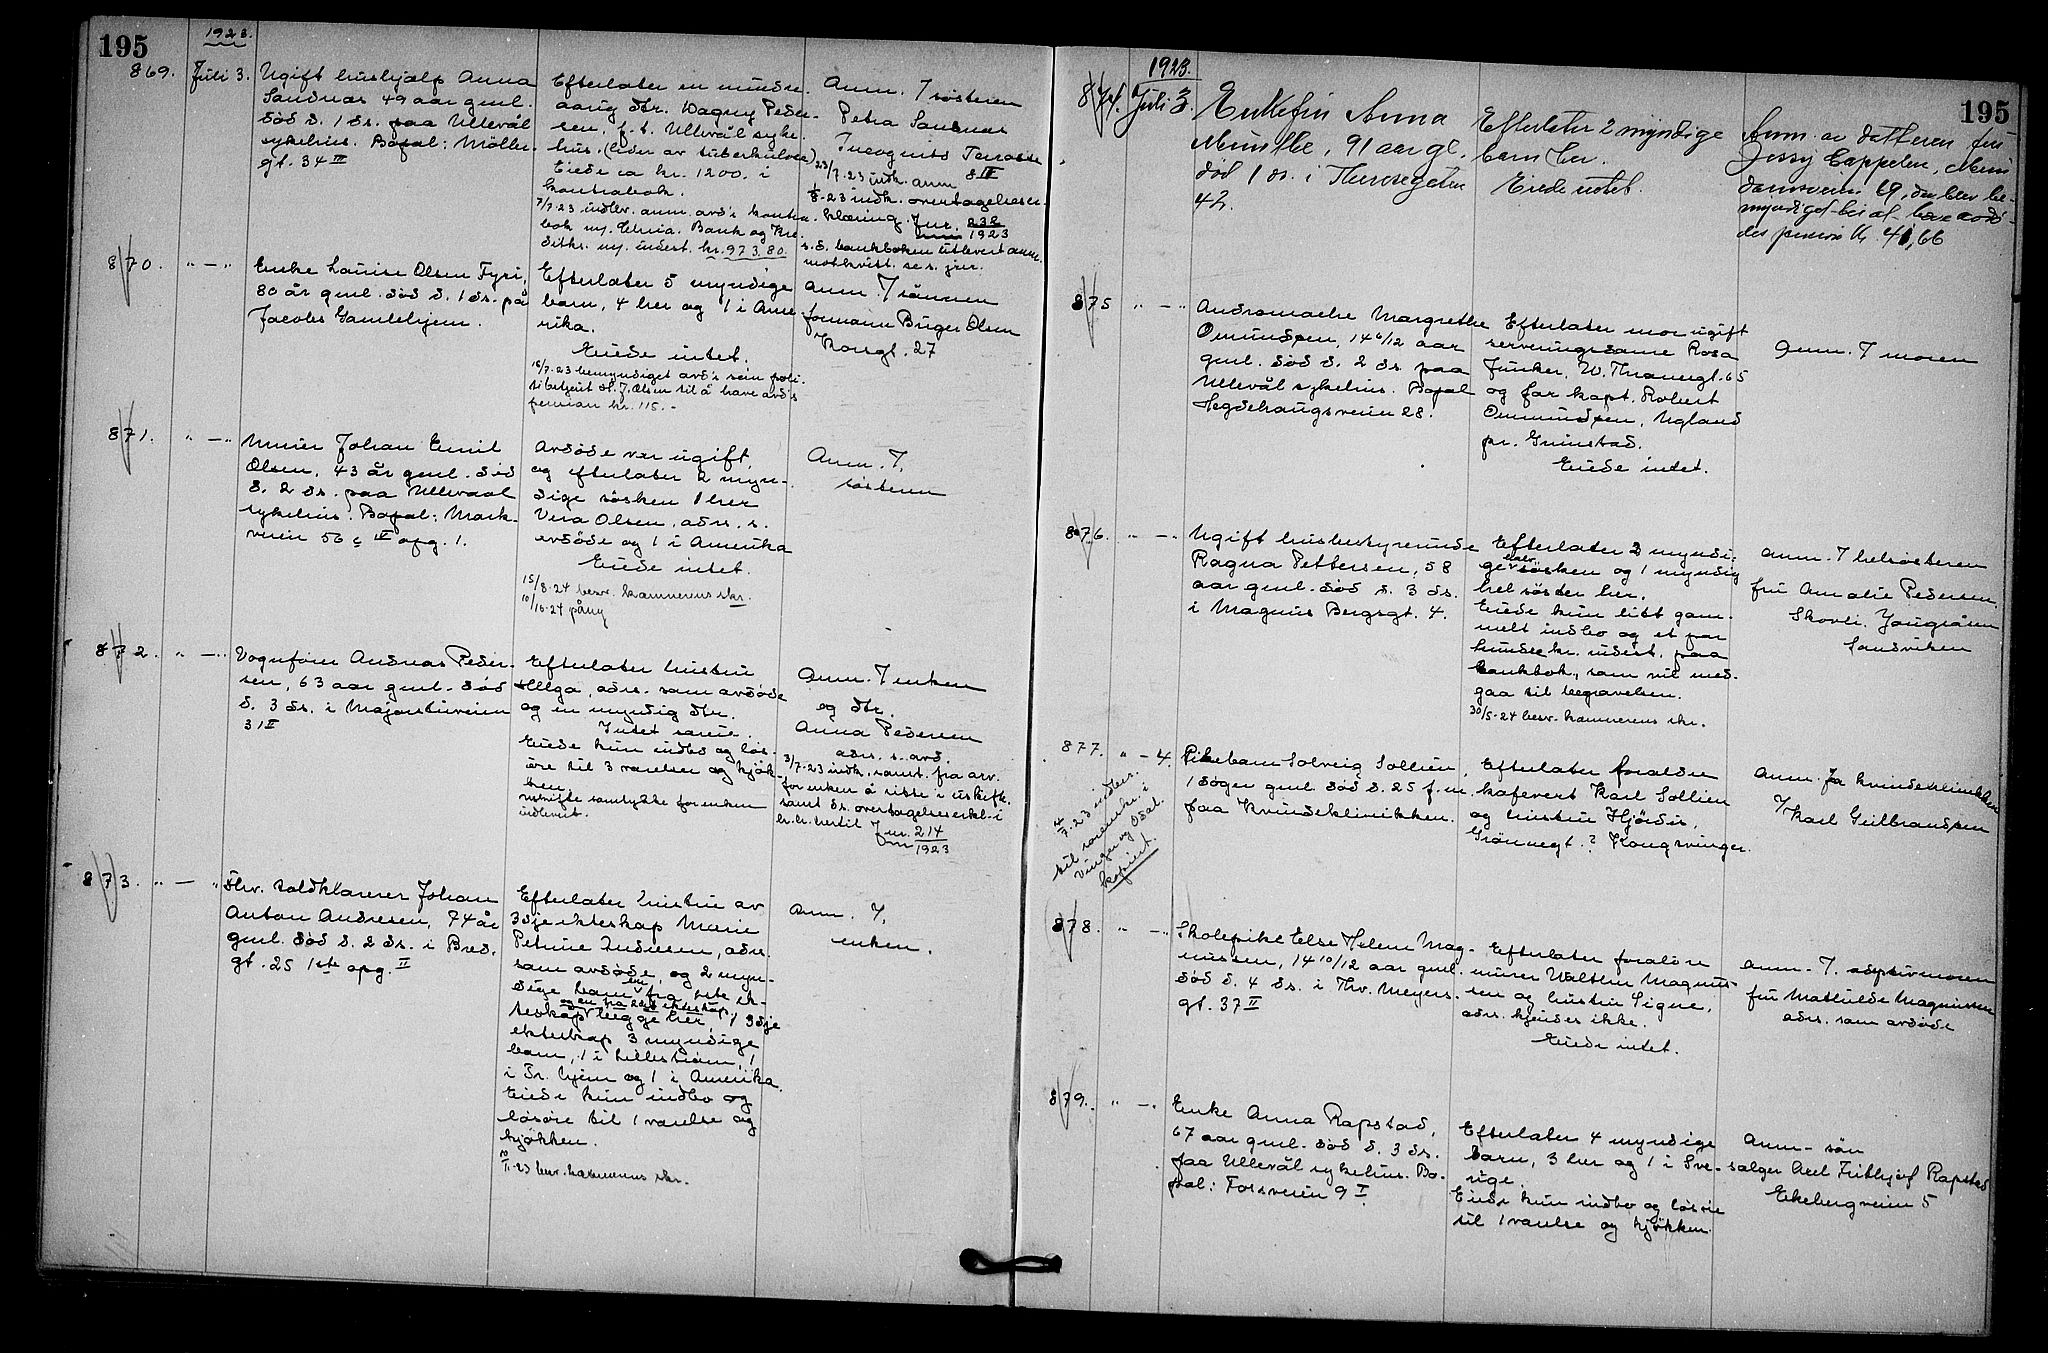 195
1923.
869. Juli 3.
Ugift hushjælp Anna
Sandnæs 49 aar gml.
død d. 1 ds. paa Ullevål
sykehus. Bopæl: Möller-
gt. 34 III
Efterlater en mindre-
aarig dtr. Dagny Peder-
sen, f. t. Ullevål syke-
hus. (lider av tuberkulose)
Eiede ca kr. 1200. i
kontrabok.
7/7-23 indlev. anm. avd's kontra-
bok m. Chria. Bank og Kre-
ditk. m. indest. kr. 973.80.
Anm. / søsteren
Petra Sandnæs
Incognito Terrasse
8 III
23/7.23 indk. anm
1/8-23 indk. overtagelseser-
klæring. Jnr. 232
1923
s. d. bankboken utlevert anm.
mot kvitt. se s. jnr.
870. " — "
Enke Louise Olsen Fyri,
80 år gml. død d. 1 ds. på
Jacobs Gamlehjem.
Efterlater 5 myndige
barn, 4 her og 1 i Ame-
rika.
Eiede intet.
16/7.23 bemyndiget avd's søn poli-
tibetjent H. J. Olsen til å heve avd's
pension kr. 115.-
Anm. / sønnen
formann Birger Olsen
Korsgt. 27
871. " — "
Murer Johan Emil
Olsen, 43 år gml. død
d. 2 ds. paa Ullevaal
sykehus. Bopæl: Mark-
veien 56 c IV opg. 1.
Avdøde var ugift,
og efterlater 2 myn-
dige søsken 1 her
Vera Olsen, adrs. s.
avdøde og 1 i Amerika
Eiede intet.
15/8-24 besv. kæmnerens skr.
10/10-24 påny
Anm. /
søsteren
872. " — "
Vognfører Andreas Peder-
sen, 63 aar gml. død
d. 3 ds. i Majorstuveien
31 II
Efterlater hustru
Helga, adrs. som avdøde
og en myndig dtr.
Intet særeie.
Eiede kun indbo og løs-
øre til 3 værelser og kjøk-
ken
utskifte samtykke for enken
indlevert.
Anm. / enken
og dtr.
Anna Pedersen
adrs. s. avd.
3/7.23 indk. samt. fra arv.
for enken å sitte i uskifte
samt ds. overtagelseserkl. i
h. h. hertil Jnr. 214
1923
873. " — "
Fhv. toldklarerer Johan
Anton Andresen, 74 år
gml. død d. 2 ds. i Bred-
gt. 25 1ste opg. II
Efterlater hustru av
3dje ekteskap Marie
Petrine Andresen, adrs.
som avdøde, og 2 myn-
dige barn en fra 1ste ek-
teskap og en fra 2det ekteskap begge her, / 3dje
ekteskap 3 myndige
barn, 1 i Lillestrøm, 1
i Tr. hjem og 1 i Amerika.
Eiede kun indbo og
løsøre til 1 værelse og
kjøkken.
10/11-23 besv. kæmnerens skr.
Anm. /
enken.
195
1923.
874. Juli 3.
Enkefru Anna
Munthe, 91 aar gl.
død 1 ds. i Theresegaten
42.
Efterlater 2 myndige
barn her.
Eiede intet.
Anm. av datteren fru
Jessy Cappelen, Mun
damsveien 69, der blev be-
myndiget til at heve avdø-
des pension Kr. 41,66
875 " — "
Andromache Margrethe
Omundsen, 14 6/12 aar
gml. død d. 2 ds. paa
Ullevål sykehus. Bopæl
Hegdehaugsveien 28.
Efterlater mor ugift
serveringsdame Rosa
Junker, W. Thranesgt. 65
og far kapt. Robert
Ommundsen, Ugland
pr. Grimstad.
Eiede intet.
Anm. / moren
876. " — "
Ugift husbestyrerinde
Ragna Pettersen, 58
aar gml. død d. 3 ds.
i Magnus Bergsgt. 4.
Efterlater 3 myndi-
ge halvsøsken og 1 myndig
hel søster her.
Eiede kun litt gam-
melt indbo og et par
hundre kr. indest. paa
bankbok, som vil med-
gaa til begravelsen.
30/5-24 besv. kæmnerens skr.
Anm. / helsøsteren
fru Amalie Pedersen,
Skovli, Jongsåsen
Sandviken
877. " — 4.
Pikebarn Solveig Sollien,
1 døger gml død d. 25 f. m.
paa Kvindeklinikken.
4/7-23 indber.
til sorenskr. i
Vinger og Odal.
kopiert.
Efterlater foreldre
kafevert Karl Sollien
og hustru Hjördis,
Grönnegt. ? Kongsvinger.
Anm. fra kvindeklinikken
/ Karl Gulbrandsen
878. " — "
Skolepike Else Helene Mag-
nussen, 14 10/12 aar gml.
død d. 4 ds. i Thv. Meyers-
gt. 37 II
Efterlater foreldre
murer Walther Magnus-
sen og hustru Signe,
adrs. kjendes ikke.
Eiede intet.
Anm. /. adoptivmoren
fru Mathilde Magnussen
adrs. som avdøde
879. " — "
Enke Anna Rapstad,
67 aar gml. død d. 3 ds.
paa Ullevål sykehus. Bo-
pæl: Forsveien 9 I
Efterlater 4 myndige
barn, 3 her og 1 i Sve-
rige.
Eiede kun indbo og løsøre
til 1 værelse og kjøkken.
Anm- søn
selger Axel Fridtjof Rapstad
Ekebergveien 5